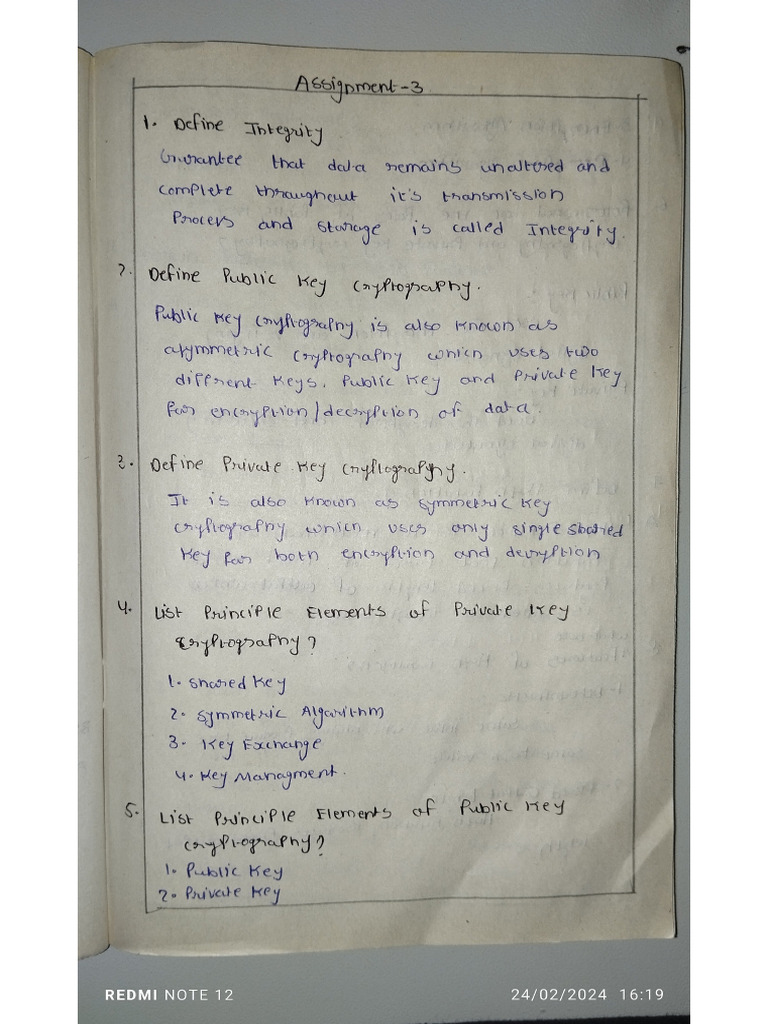 Assignment-3
1. Define Integrity
Gurantee that data remains unaltered and
complete throughout it's transmission
Process and storage is called Integrity.
2. Define Public Key Cryptography.
Public key cryptography is also known as
asymmetric cryptography which uses two
different keys, Public Key and Private Key
for encryption/decryption of data.
3. Define Private Key Cryptography.
It is also known as symmetric key
cryptography which uses only single shared
key for both encryption and decryption
4. List Principle Elements of Private Key
Cryptography?
1. Shared Key
2. Symmetric Algorithm
3. Key Exchange
4. Key Managment.
5. List Principle Elements of Public Key
Cryptography?
1. Public Key
2. Private Key
REDMI NOTE 12
24/02/2024 16:19